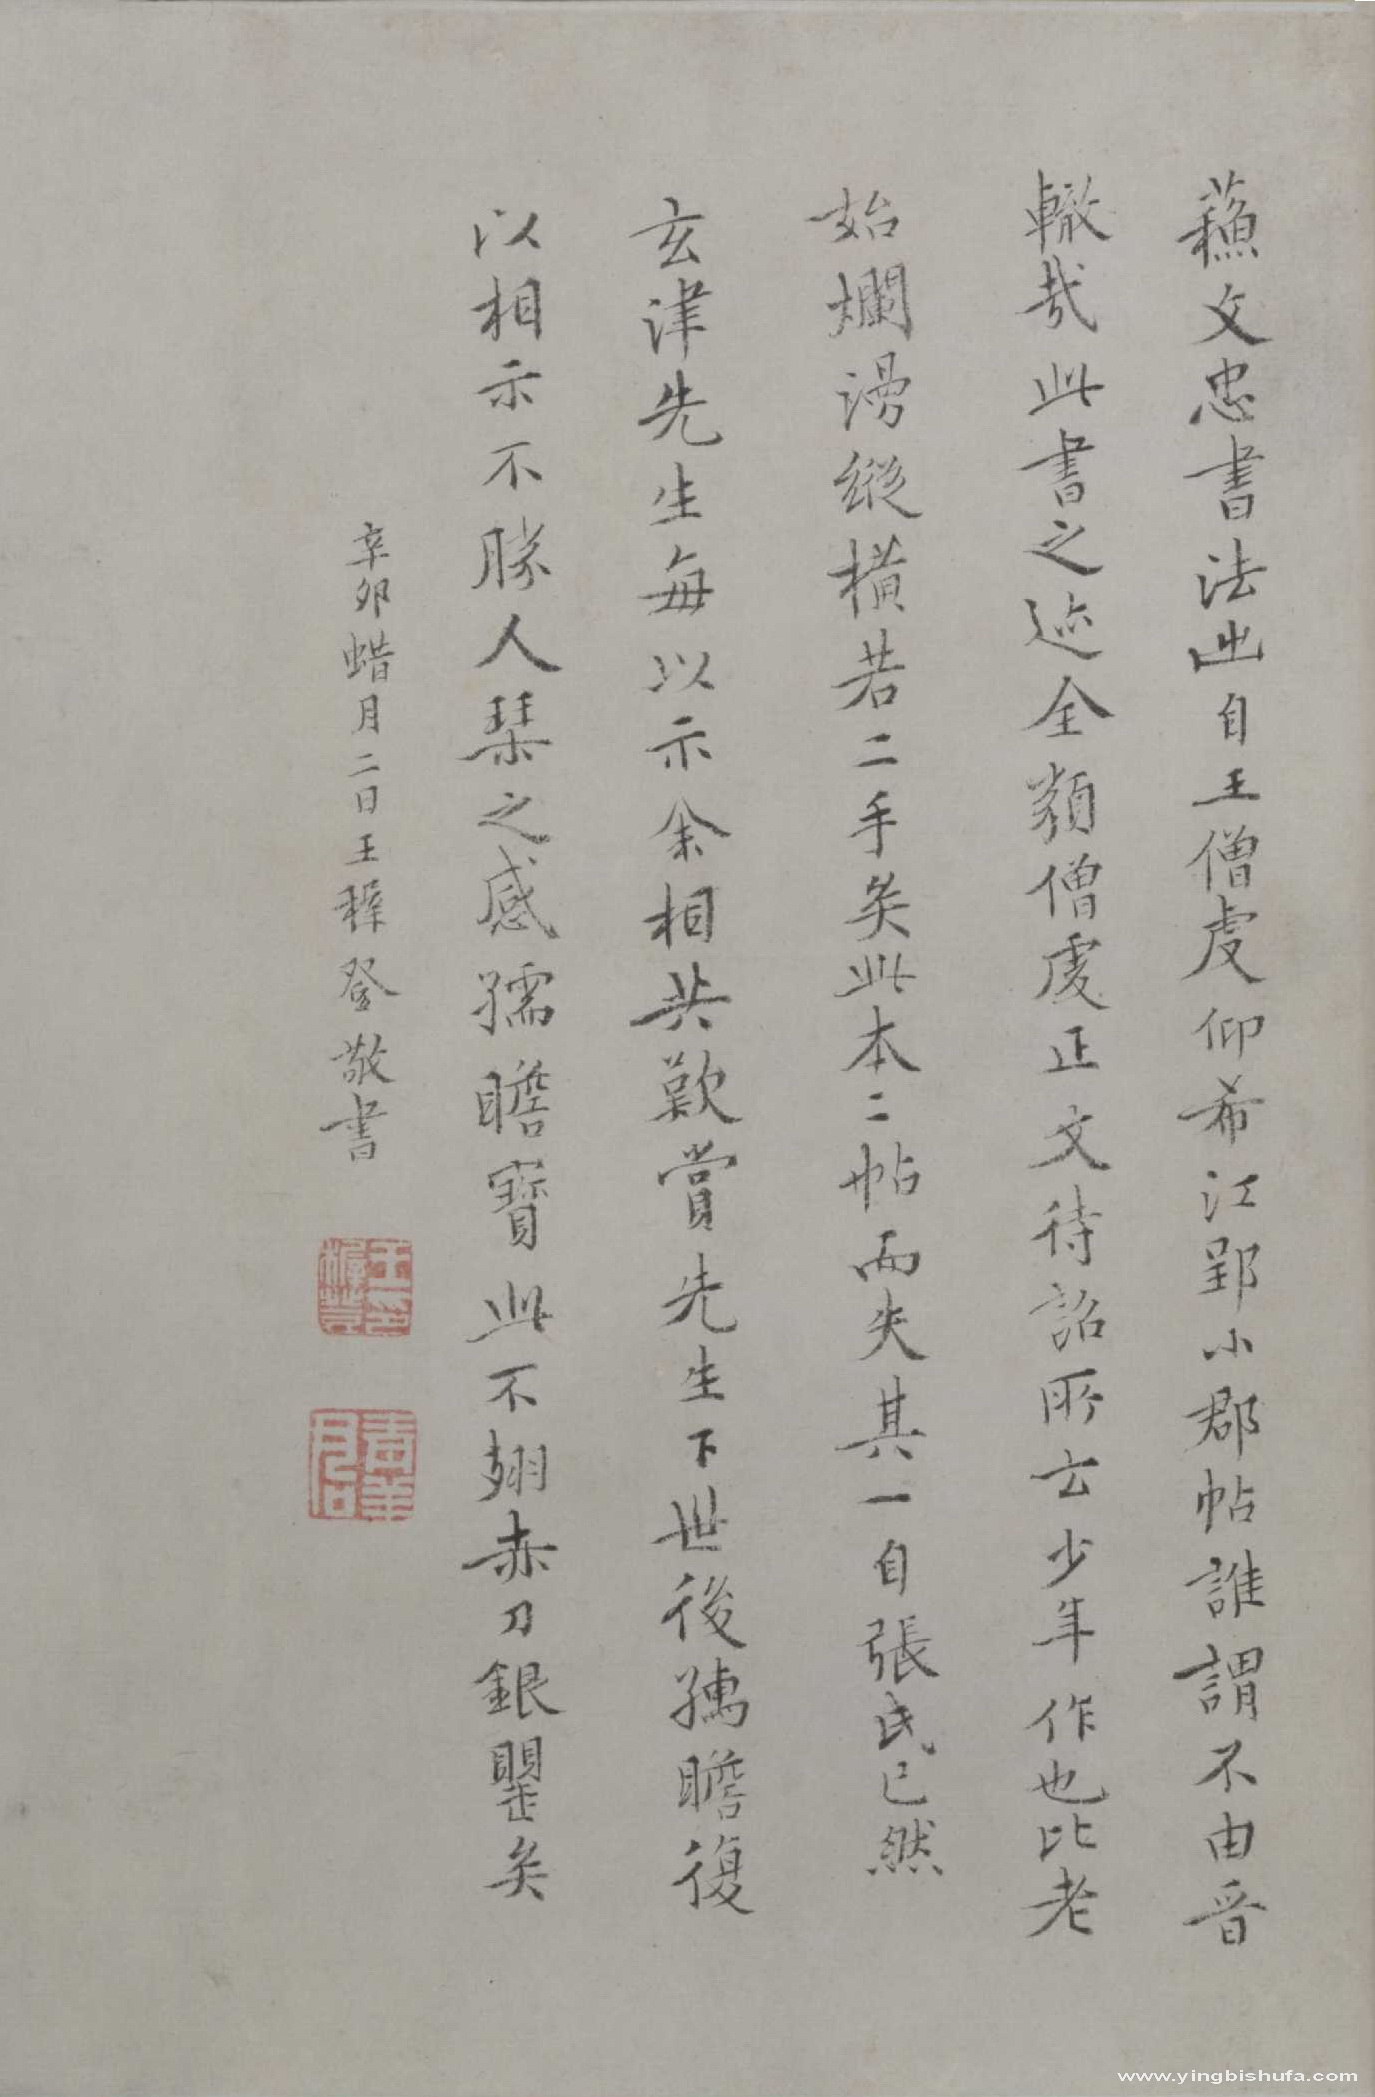 蘓文忠書法出自王僧虔仰希江郢小郡帖誰謂不由晉
轍哉此書之迹全類僧虔正文待詔所云少年作也比老
始爛漫縱橫若二手矣此本二帖而失其一自張氏已然
玄津先生每以示余相共歎賞先生下世後孺瞻復
以相示不勝人琹之感孺瞻寶此不翅赤刀銀瞿矣
辛卯蜡月二日王穉登敬書
王穉登印
青羊君
www.yingbishufa.com